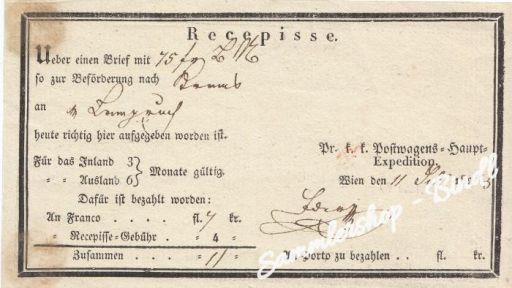 Recepisse.
Ueber einen Brief mit 75 fg B M
so zur Beförderung nach
an
heute richtig hier aufgegeben worden ist.
Für das Inland 3
" " Ausland 6 } Monate gültig.
Dafür ist bezahlt worden:
An Franco . . . . fl. 7 kr.
" Recepisse-Gebühr . " 4 "
Zusammen . . . " 11 "
Pr. k. k. Postwagens-Haupt-
Expedition.
Wien den 11
An Porto zu bezahlen . . fl. kr.
Sammlershop - Bindl